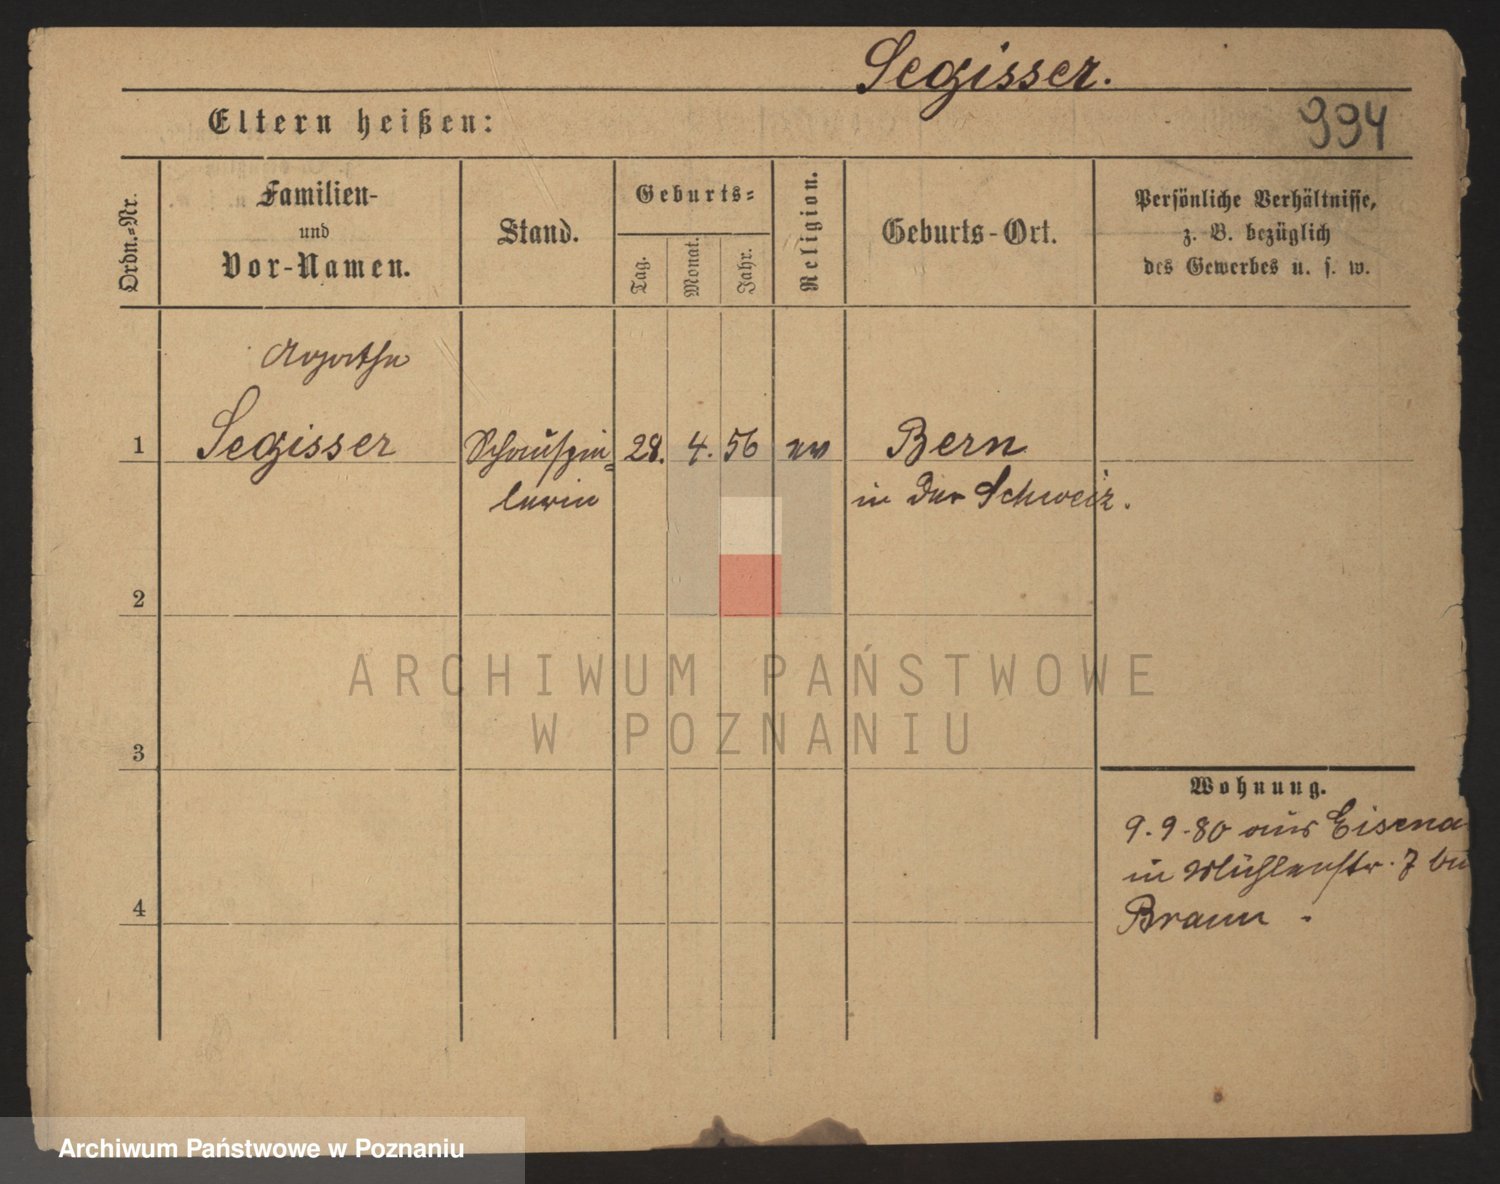 Segisser.
994
Eltern heißen:
Ordn.-Nr.
Familien-
und
Vor-Namen.
Stand.
Geburts-
Tag.
Monat.
Jahr.
Religion.
Geburts-Ort.
Persönliche Verhältnisse,
z. B. bezüglich
des Gewerbes u. s. w.
Agathe
1 Segisser Schauspie= 28. 4. 56 ev Bern
lerin in der Schweiz.
2
3
4
Wohnung.
9.9.80 aus Eisena
in Mühlenstr. 7 bei
Braun.
ARCHIWUM PAŃSTWOWE
W POZNANIU
Archiwum Państwowe w Poznaniu